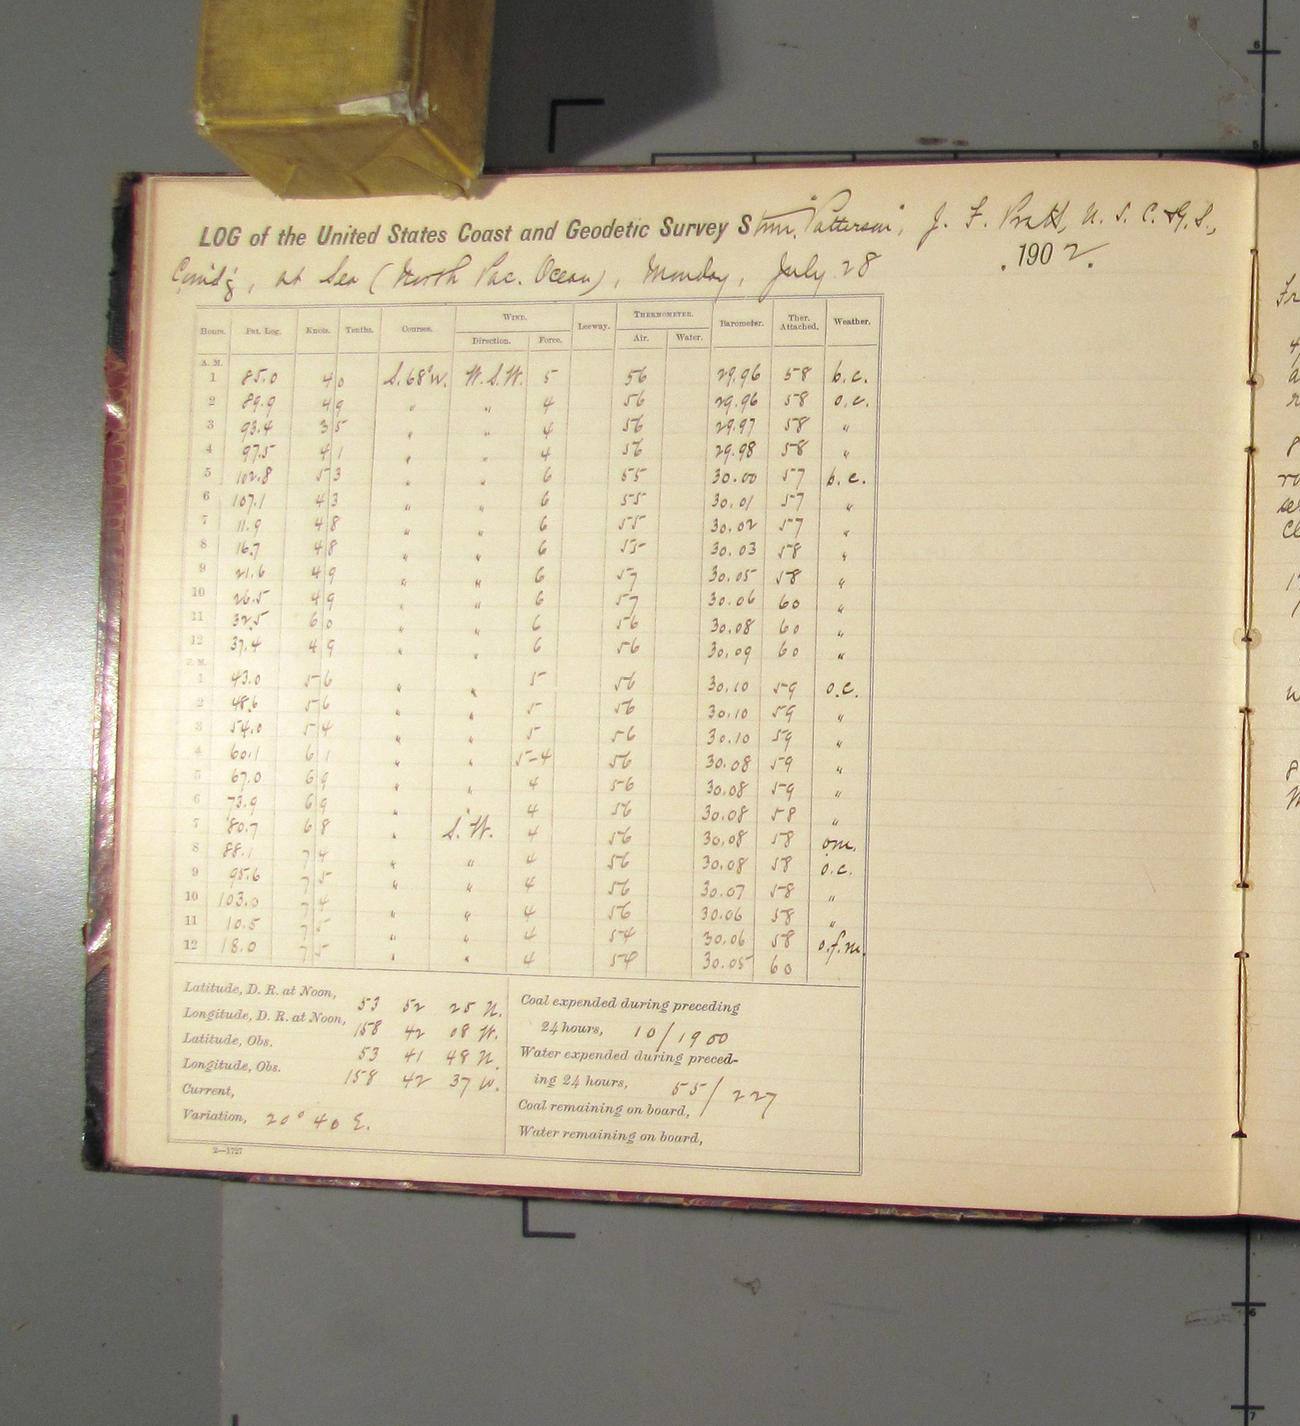 LOG of the United States Coast and Geodetic Survey Stmr. "Patterson", J. F. Pratt, U. S. C. & G. S.,
Com'd'g, at Sea (North Pac. Ocean), Monday, July 28, 1902.
Hours. Pat. Log. Knots. Tenths. Courses. WIND. Leeway. THERMOMETER. Barometer. Ther. Attached. Weather.
Direction. Force. Air. Water.
A. M.
1 85.0 4 0 S. 68° W. W. S. W. 5 56 29.96 58 b.c.
2 89.9 4 9 " " 4 56 29.96 58 o.c.
3 93.4 3 5 " " 4 56 29.97 58 "
4 97.5 4 1 " " 4 56 29.98 58 "
5 102.8 5 3 " " 6 55 30.00 57 b.c.
6 107.1 4 3 " " 6 55 30.01 57 "
7 11.9 4 8 " " 6 55 30.02 57 "
8 16.7 4 8 " " 6 55 30.03 58 "
9 21.6 4 9 " " 6 57 30.05 58 "
10 26.5 4 9 " " 6 57 30.06 60 "
11 32.5 6 0 " " 6 56 30.08 60 "
12 37.4 4 9 " " 6 56 30.09 60 "
P. M.
1 43.0 5 6 " " 5 56 30.10 59 o.c.
2 48.6 5 6 " " 5 56 30.10 59 "
3 54.0 5 4 " " 5 56 30.10 59 "
4 60.1 6 1 " " 5-4 56 30.08 59 "
5 67.0 6 9 " " 4 56 30.08 59 "
6 73.9 6 9 " " 4 56 30.08 58 "
7 80.7 6 8 " S. W. 4 56 30.08 58 om.
8 88.1 7 4 " " 4 56 30.08 58 o.c.
9 95.6 7 5 " " 4 56 30.07 58 "
10 103.0 7 4 " " 4 56 30.06 58 "
11 10.5 7 5 " " 4 54 30.06 58 o.f.m.
12 18.0 7 5 " " 4 54 30.05 60
Latitude, D. R. at Noon, 53 52 25 N.
Longitude, D. R. at Noon, 158 42 08 W.
Latitude, Obs. 53 41 48 N.
Longitude, Obs. 158 42 37 W.
Current,
Variation, 20° 40 E.
Coal expended during preceding
24 hours, 10/1900
Water expended during preced-
ing 24 hours, 55/227
Coal remaining on board,
Water remaining on board,
2—1727